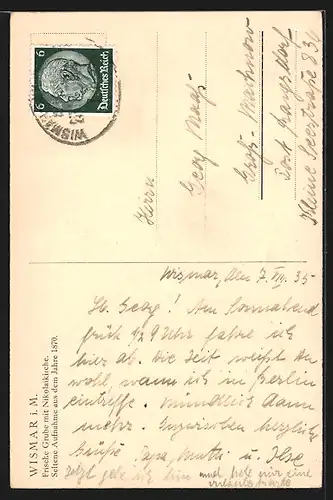 6 Deutsches Reich 6
WISMAR
Herrn
Georg
Groß-Machnow
Post Rangsdorf
Kleine Seestraße 83
WISMAR i. M.
Frische Grube mit Nikolaikirche.
Seltene Aufnahme aus dem Jahre 1870.
Wismar, den 7. VIII. 35
Lb. Georg! Am Sonnabend
früh ½ 9 Uhr fahre ich
hier ab. Die Zeit weißt Du
wohl, wann ich in Berlin
eintreffe. Mündlich dann
mehr. Inzwischen herzliche
Grüße Papa, Mutti u. Ilse
jetzt gehe ich hin und hole mir eine